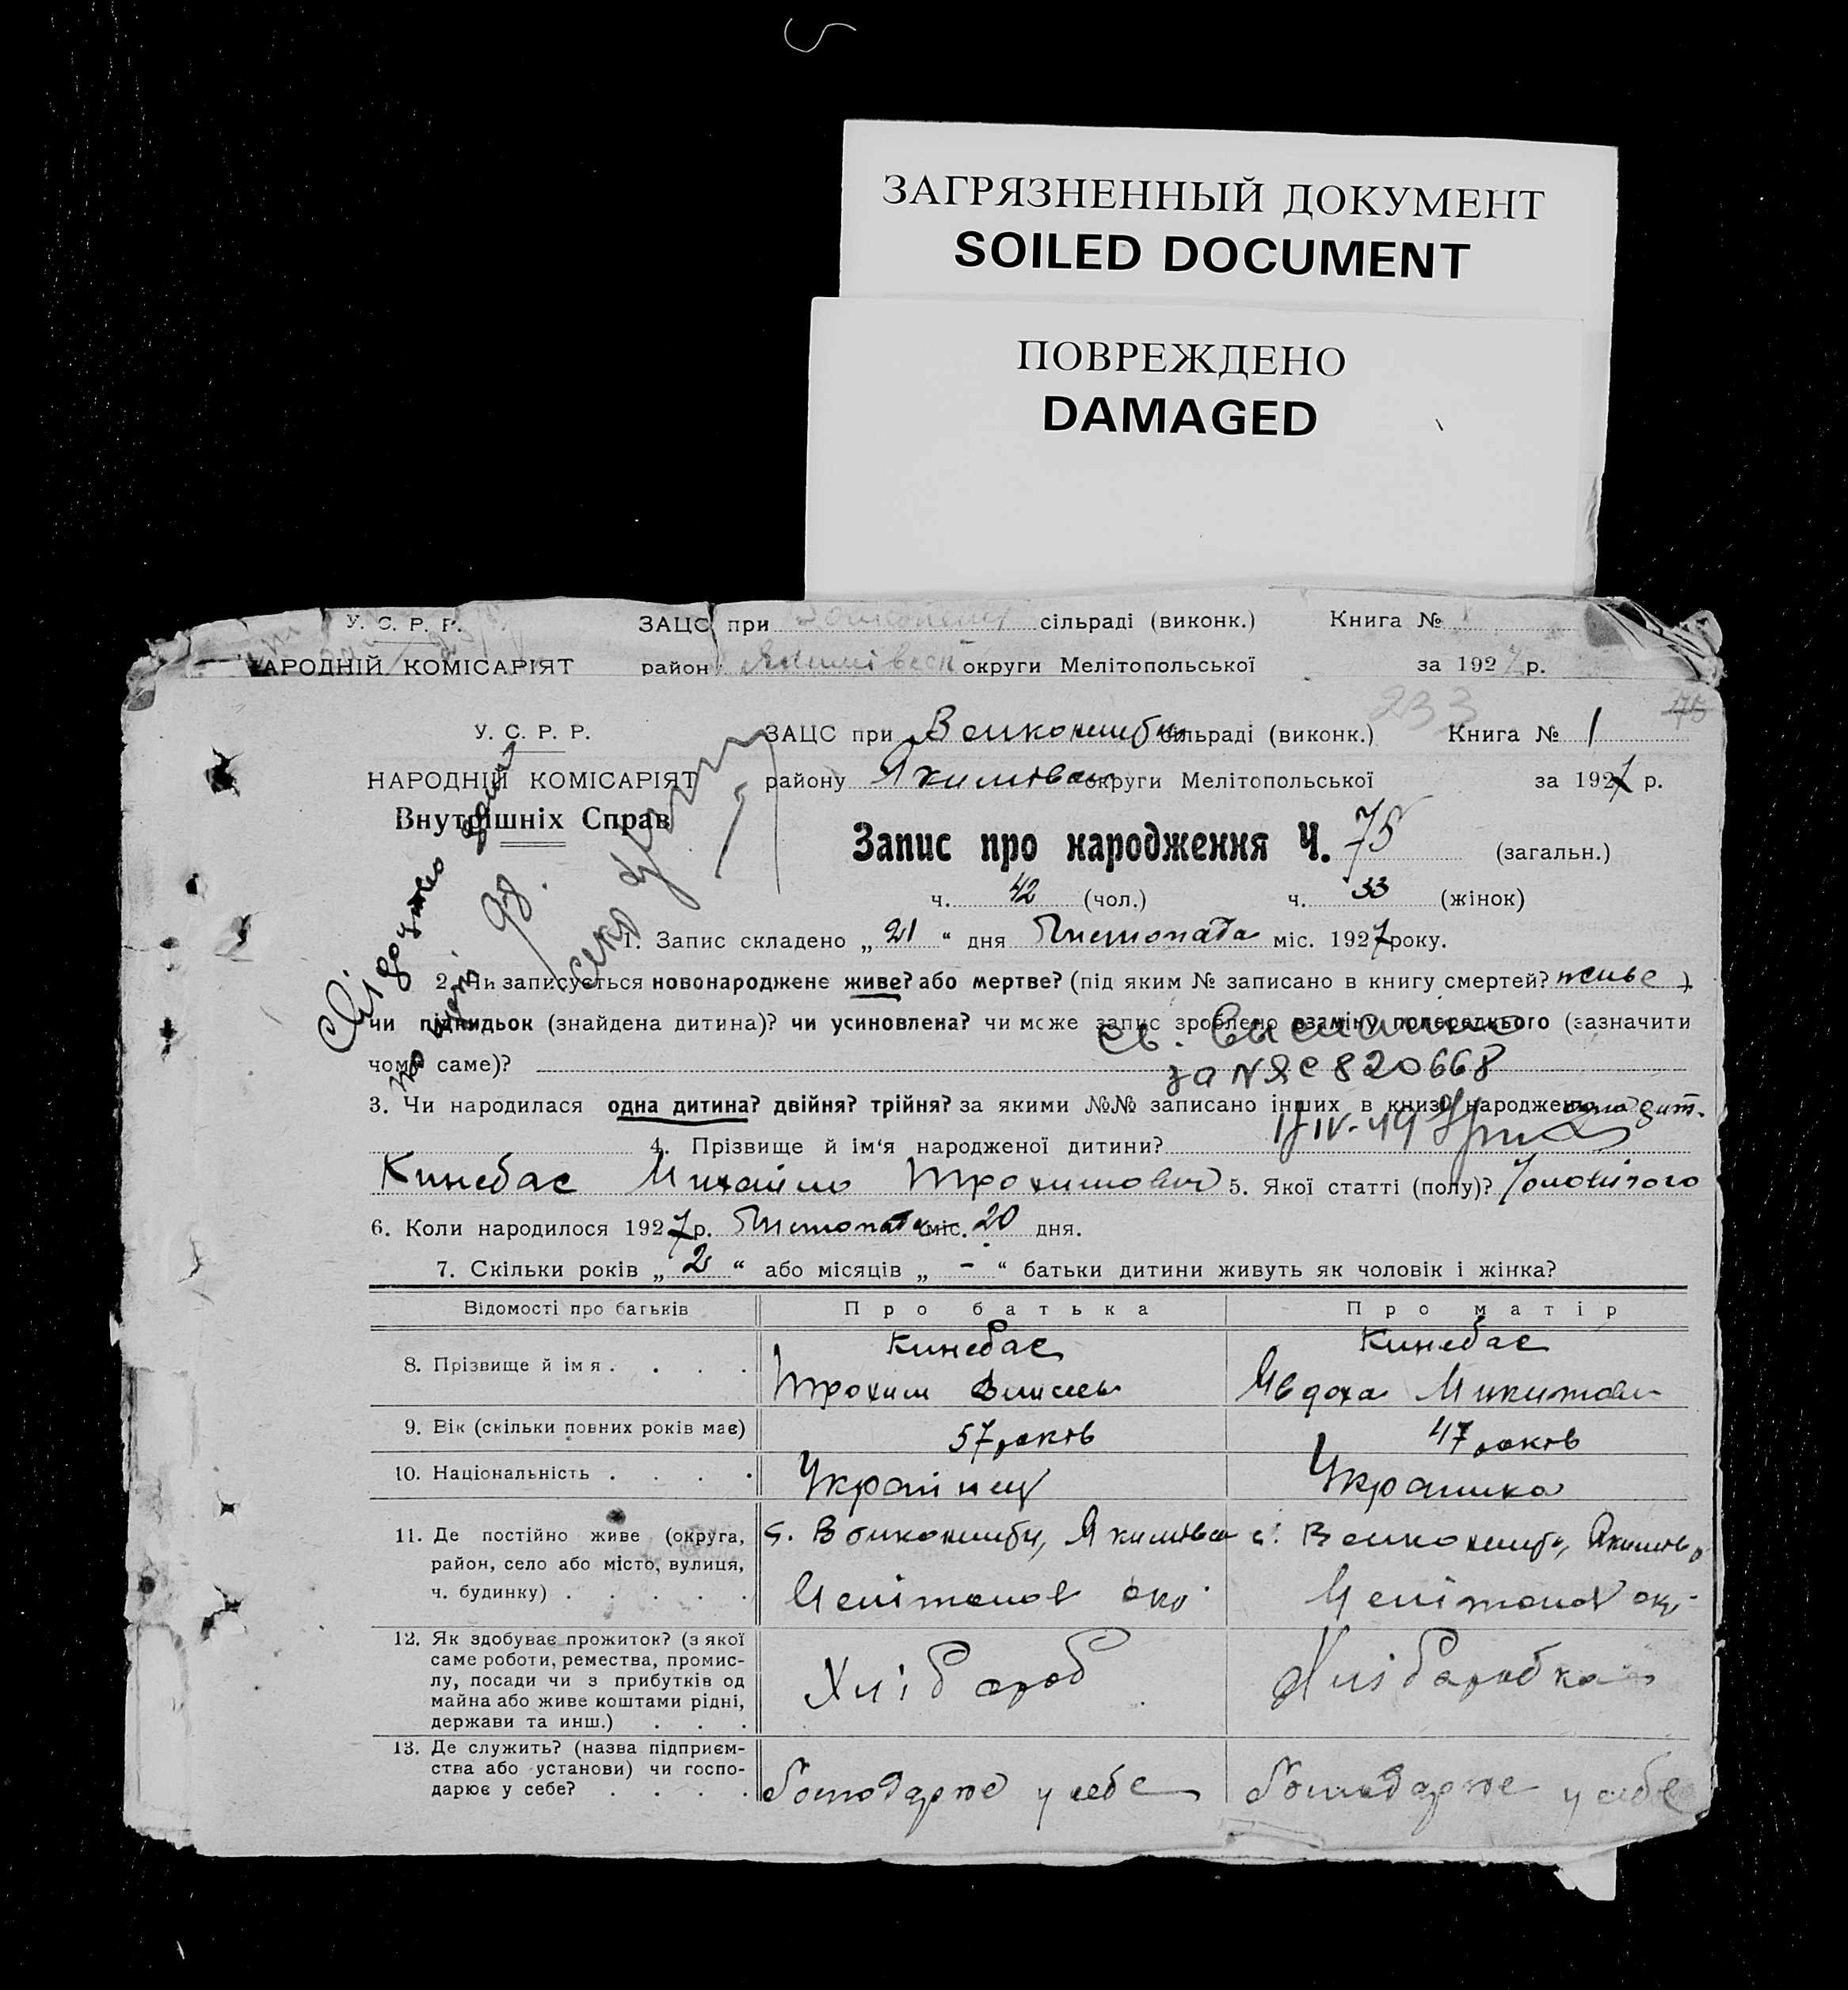 ЗАГРЯЗНЕННЫЙ ДОКУМЕНТ
SOILED DOCUMENT
ПОВРЕЖДЕНО
DAMAGED
У. С. Р. Р.
ЗАЦС при сільраді (виконк.) Книга №
АРОДНІЙ КОМІСАРІЯТ район округи Мелітопольської за 1927 р.
233 75
У. С. Р. Р. ЗАЦС при сільраді (виконк.) Книга № 1
НАРОДНІЙ КОМІСАРІЯТ району Якимівськ округи Мелітопольської за 1927 р.
Внутрішніх Справ
Запис про народження Ч. 75 (загальн.)
ч. 42 (чол.) ч. 33 (жінок)
1. Запис складено „ 21 “ дня Листопада міс. 1927 року.
2. Чи записується новонароджене живе? або мертве? (під яким № записано в книгу смертей? живе )
чи підкидьок (знайдена дитина)? чи усиновлена? чи може запис зроблено взаміну попереднього (зазначити
чому саме)?
за № 820668
3. Чи народилася одна дитина? двійня? трійня? за якими №№ записано інших в книзі народжень дит.
4. Прізвище й ім‘я народженої дитини?
Кинебас Михайло Трохимович 5. Якої статті (полу)? Чоловічого
6. Коли народилося 1927 р. Листопада міс. 20 дня.
7. Скільки років „ 2 “ або місяців „ - “ батьки дитини живуть як чоловік і жінка?
Відомості про батьків Про батька Про матір
8. Прізвище й імя . . . . Кинебас Кинебас
Трохим Явдоха Микитов
9. Вік (скільки повних років має) 57 років 47 років
10. Національність . . . . Українец Украинка
11. Де постійно живе (округа, район, село або місто, вулиця, ч. будинку) . . . . .
Мелітопол окр. Мелітопол окр.
12. Як здобуває прожиток? (з якої саме роботи, ремества, промислу, посади чи з прибутків од майна або живе коштами рідні, держави та инш.) . . . Хлібароб Хлібаробка
13. Де служить? (назва підприємства або установи) чи господарює у себе? . . . . Господарює у себе Господарює у себе